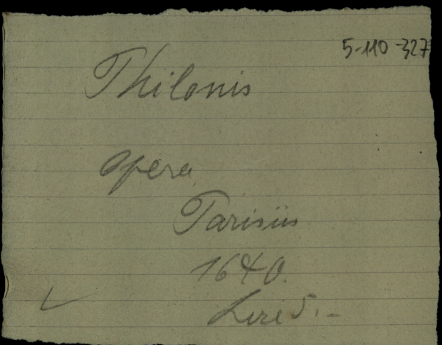 5-110-327
Thilonis
opera
Parisiis
1640.
Lire 5.-